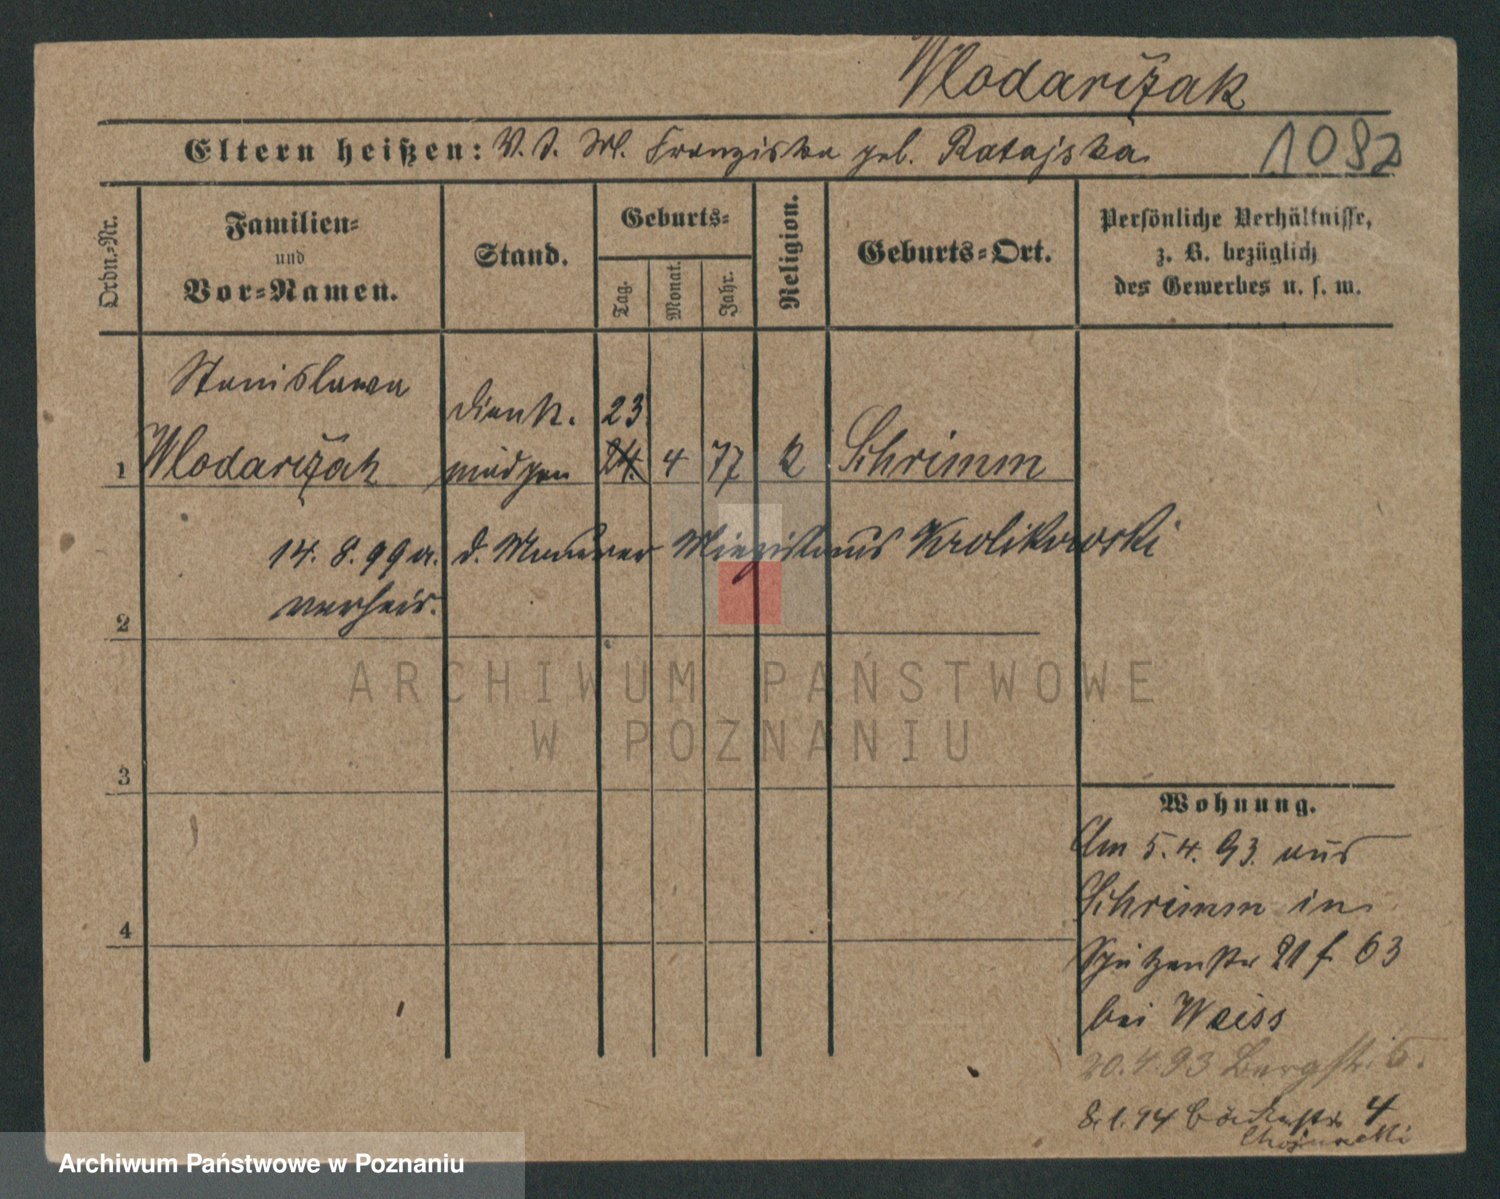 Wlodarčzak
Eltern heißen: V. J. M. Franziska geb. Ratajska
1082
Ordn.-Nr.
Familien-
und
Vor-Namen.
Stand.
Geburts-
Tag.
Monat.
Jahr.
Religion.
Geburts-Ort.
Persönliche Verhältnisse,
z. B. bezüglich
des Gewerbes u. s. w.
Stanislawa
Dienst. 23
1 Wlodarčzak mädchen 24. 4 77 k Schrimm
14. 8. 99 a. d. Maurer Miezislaus Krolikowski
verheir.
2
3
4
Wohnung.
Am 5. 4. 93. aus
Schrimm in
Schützenstr 21 f 63
bei Weiss
20. 4. 93 Bergstr. 5.
8. 1. 94 Bäckerstr 4
ARCHIWUM PAŃSTWOWE
W POZNANIU
Archiwum Państwowe w Poznaniu